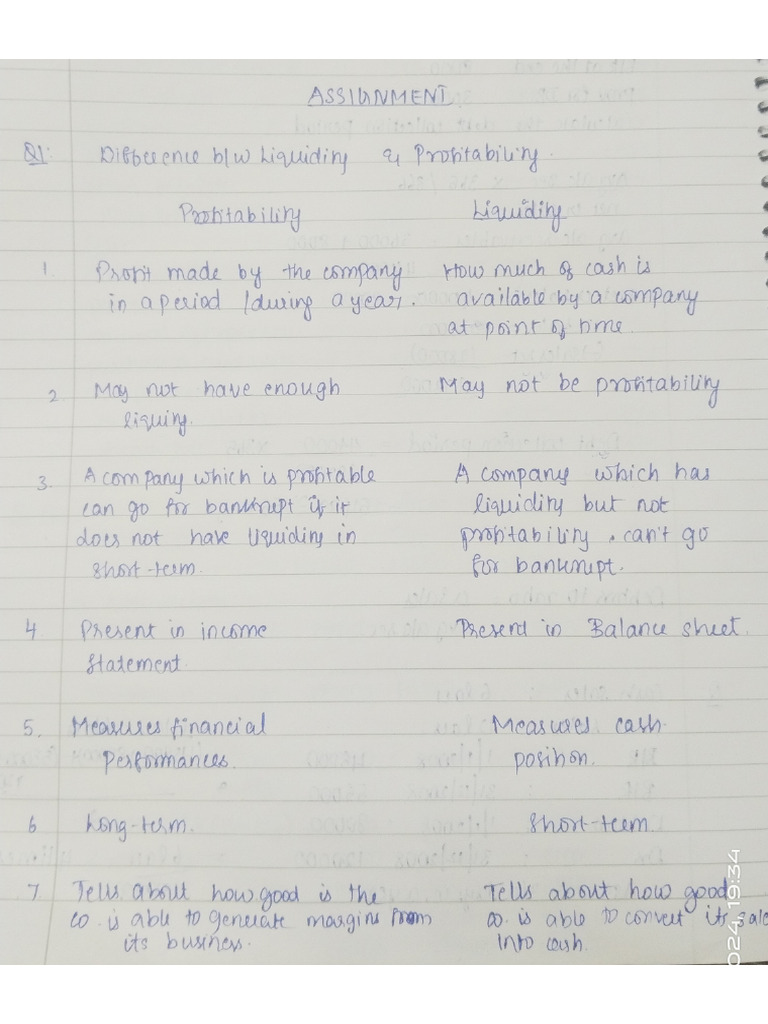 ASSIGNMENT
Q1: Difference b/w Liquidity & Profitability.
Profitability Liquidity
1. Profit made by the company How much of cash is
in a period /during a year. available by a company
at point of time.
2 May not have enough May not be profitability
liquiry.
3. A company which is profitable A company which has
can go for bankrupt if it liquidity but not
does not have liquidity in profitability. can't go
short-term. for bankrupt.
4 Present in income Present in Balance sheet.
statement.
5. Measures financial Measures cash
Performances. position.
6 Long-term. Short-term.
7 Tells about how good is the Tells about how good
co. is able to generate margins from co. is able to convert its
its business. into cash.
024 19:34